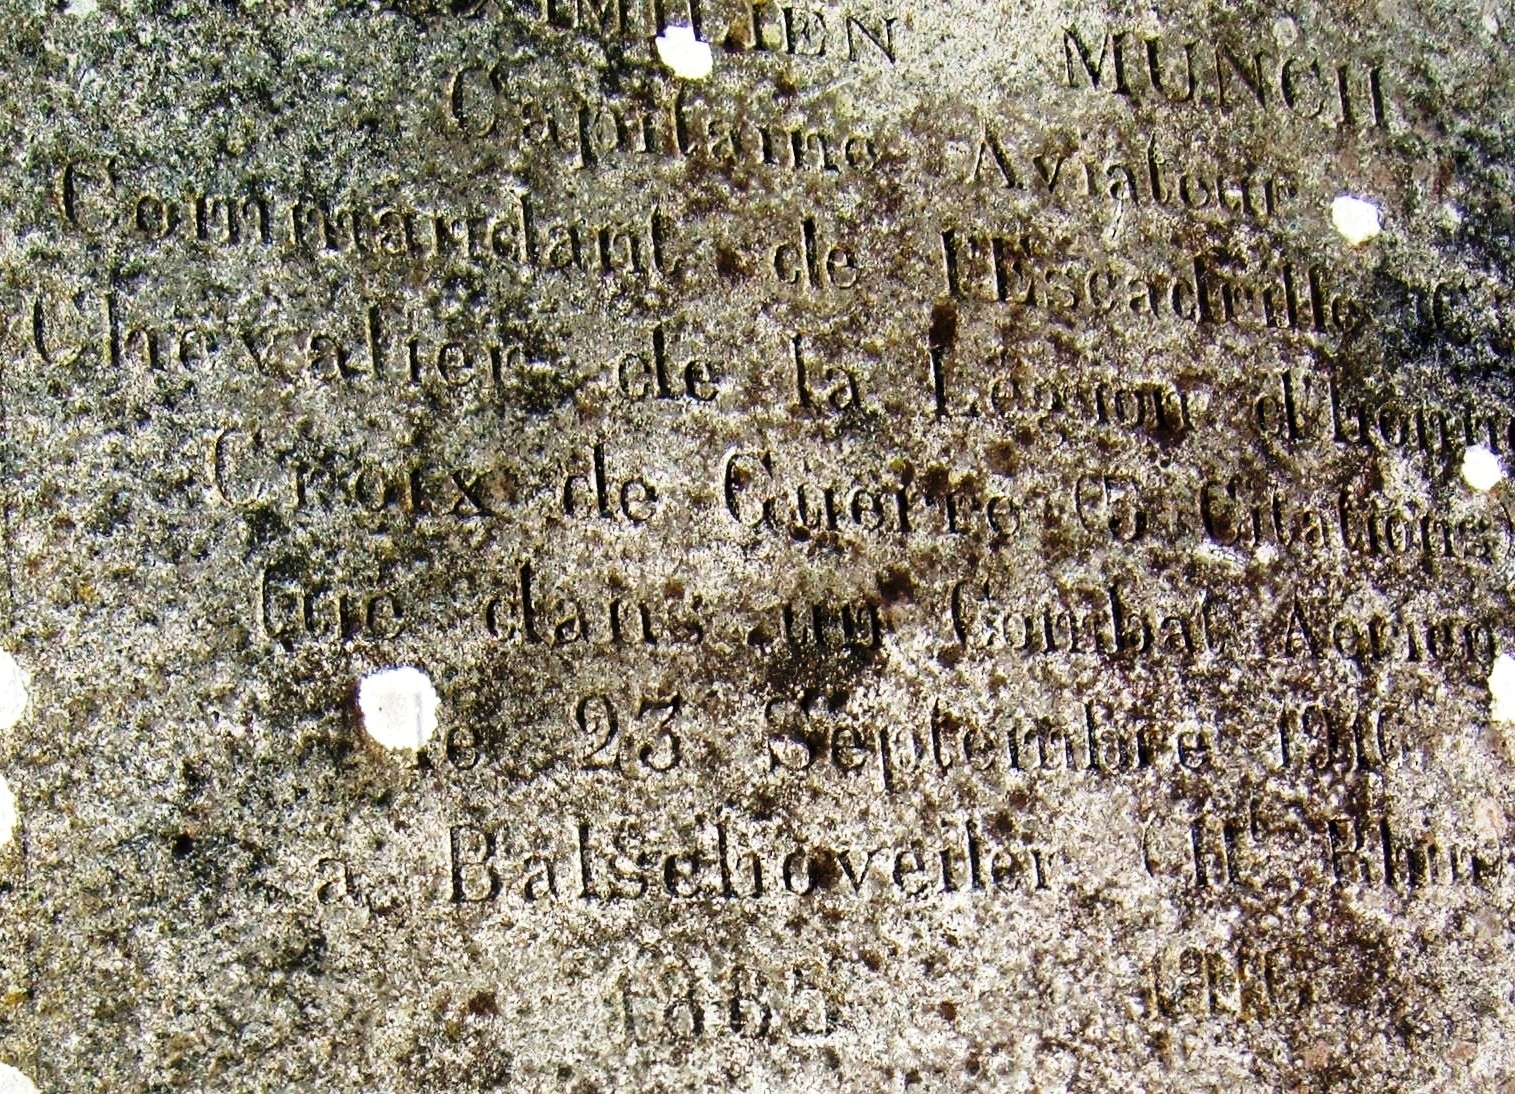 MUNCH
Capitaine Aviateur
Commandant de l'Escadrille C
Chevalier de la Légion d'honn
Croix de Guerre (5 Citations)
tué dans un Combat Aérien
le 23 Septembre 1916
à Balschoveiler (Ht Rhin)